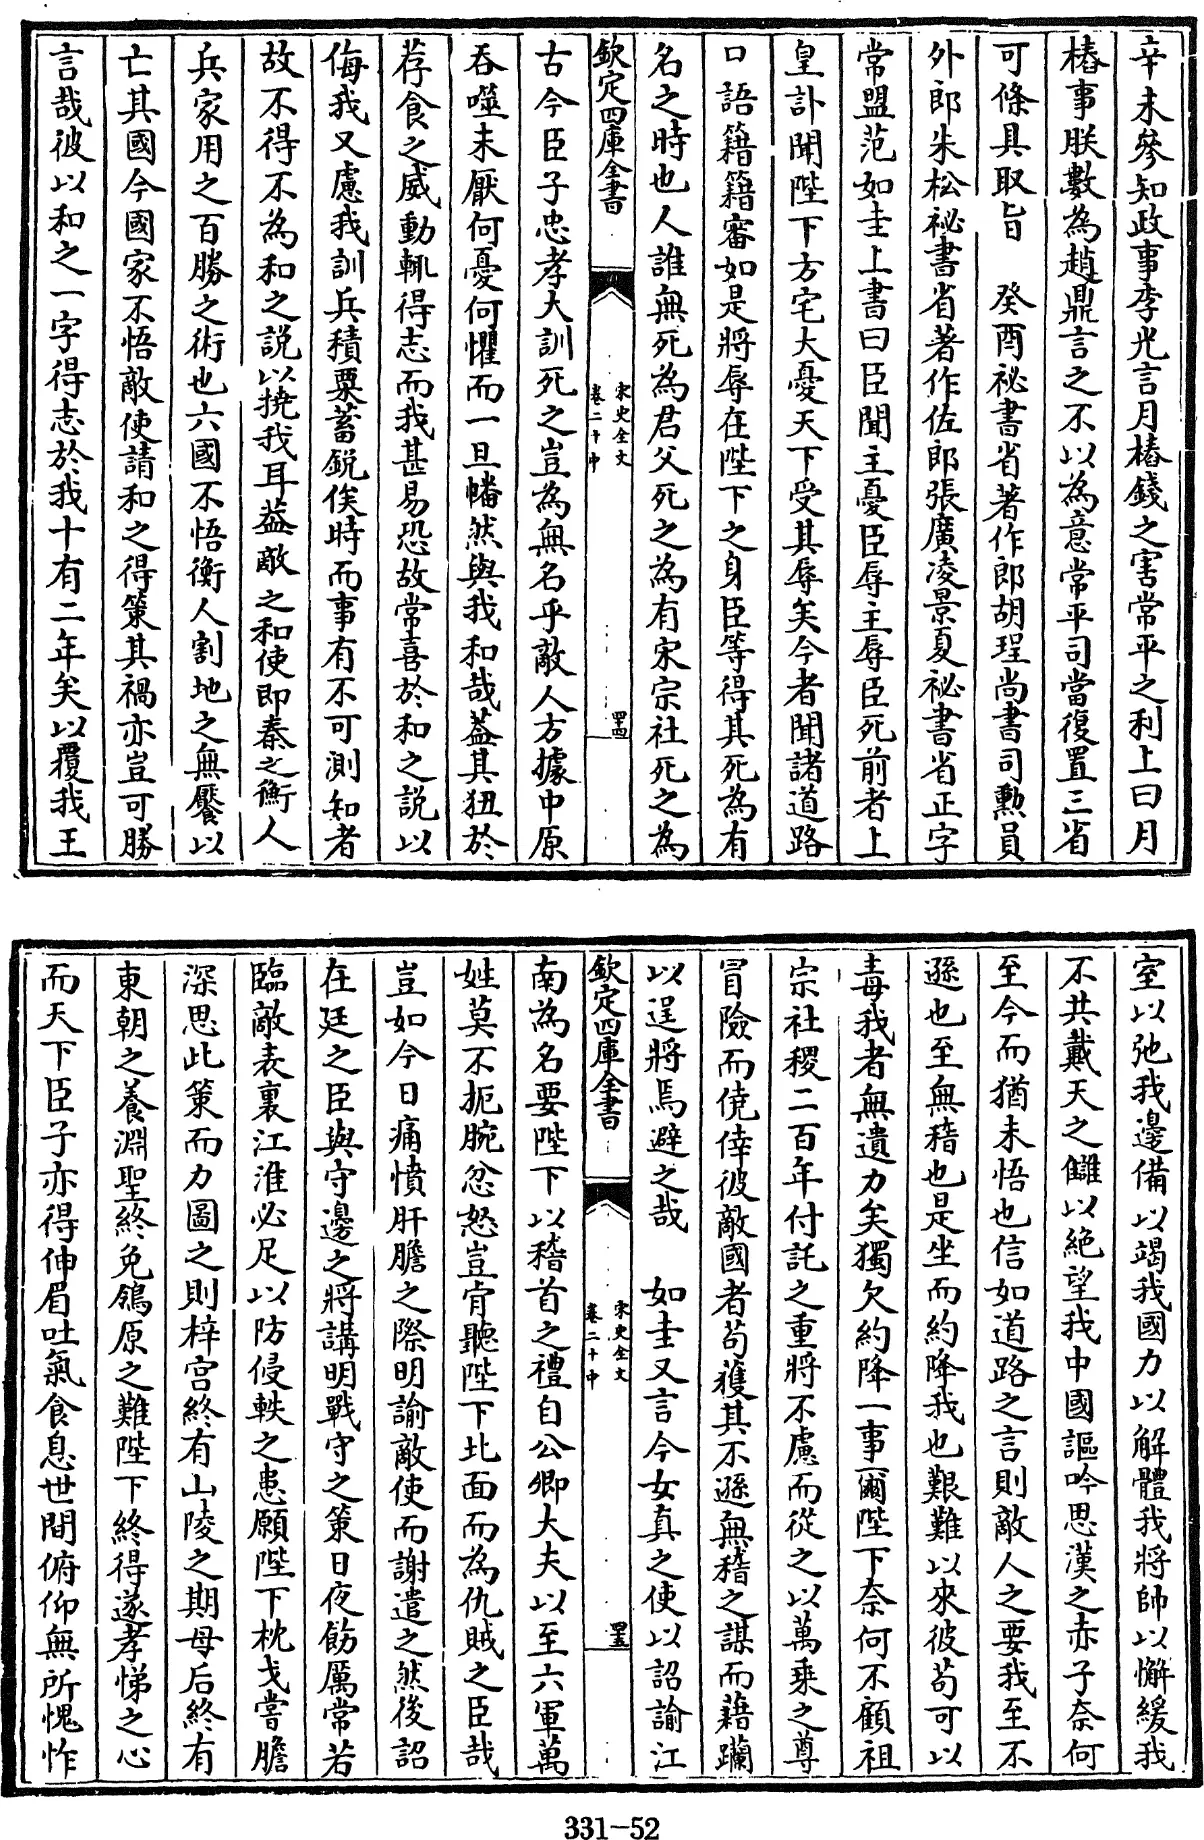 辛未參知政事李光言月樁錢之害常平之利上曰月
樁事朕數為趙鼎言之不以為意常平司當復置三省
可條具取旨　癸酉祕書省著作郎胡珵尚書司勲員
外郎朱松祕書省著作佐郎張廣凌景夏祕書省正字
常盟范如圭上書曰臣聞主憂臣辱主辱臣死前者上
皇訃聞陛下方宅大憂天下受其辱矣今者聞諸道路
口語籍籍審如是將辱在陛下之身臣等得其死為有
名之時也人誰無死為君父死之為有宋宗社死之為
欽定四庫全書
宋史全文
卷二十中
四十四
古今臣子忠孝大訓死之豈為無名乎敵人方據中原
吞噬未厭何憂何懼而一旦幡然與我和哉葢其狃於
荐食之威動輒得志而我甚易恐故常喜於和之說以
侮我又慮我訓兵積粟蓄銳俟時而事有不可測知者
故不得不為和之說以撓我耳葢敵之和使即秦之衡人
兵家用之百勝之術也六國不悟衡人割地之無饜以
亡其國今國家不悟敵使請和之得策其禍亦豈可勝
言哉彼以和之一字得志於我十有二年矣以覆我王
室以弛我邊備以竭我國力以解體我將帥以懈緩我
不共戴天之讎以絶望我中國謳吟思漢之赤子奈何
至今而猶未悟也信如道路之言則敵人之要我至不
遜也至無稽也是坐而約降我也艱難以來彼苟可以
毒我者無遺力矣獨欠約降一事爾陛下奈何不顧祖
宗社稷二百年付託之重將不慮而從之以萬乘之尊
冒險而僥倖彼敵國者茍獲其不遜無稽之謀而藉躪
以逞將焉避之哉　如圭又言今女真之使以詔諭江
欽定四庫全書
宋史全文
卷二十中
四十五
南為名要陛下以稽首之禮自公卿大夫以至六軍萬
姓莫不扼腕忿怒豈肯聽陛下北面而為仇賊之臣哉
豈如今日痛憤肝膽之際明諭敵使而謝遣之然後詔
在廷之臣與守邊之將講明戰守之策日夜飭厲常若
臨敵表裏江淮必足以防侵軼之患願陛下枕戈嘗膽
深思此策而力圖之則梓宮終有山陵之期母后終有
東朝之養淵聖終免鴒原之難陛下終得遂孝悌之心
而天下臣子亦得伸眉吐氣食息世間俯仰無所愧怍
331-52